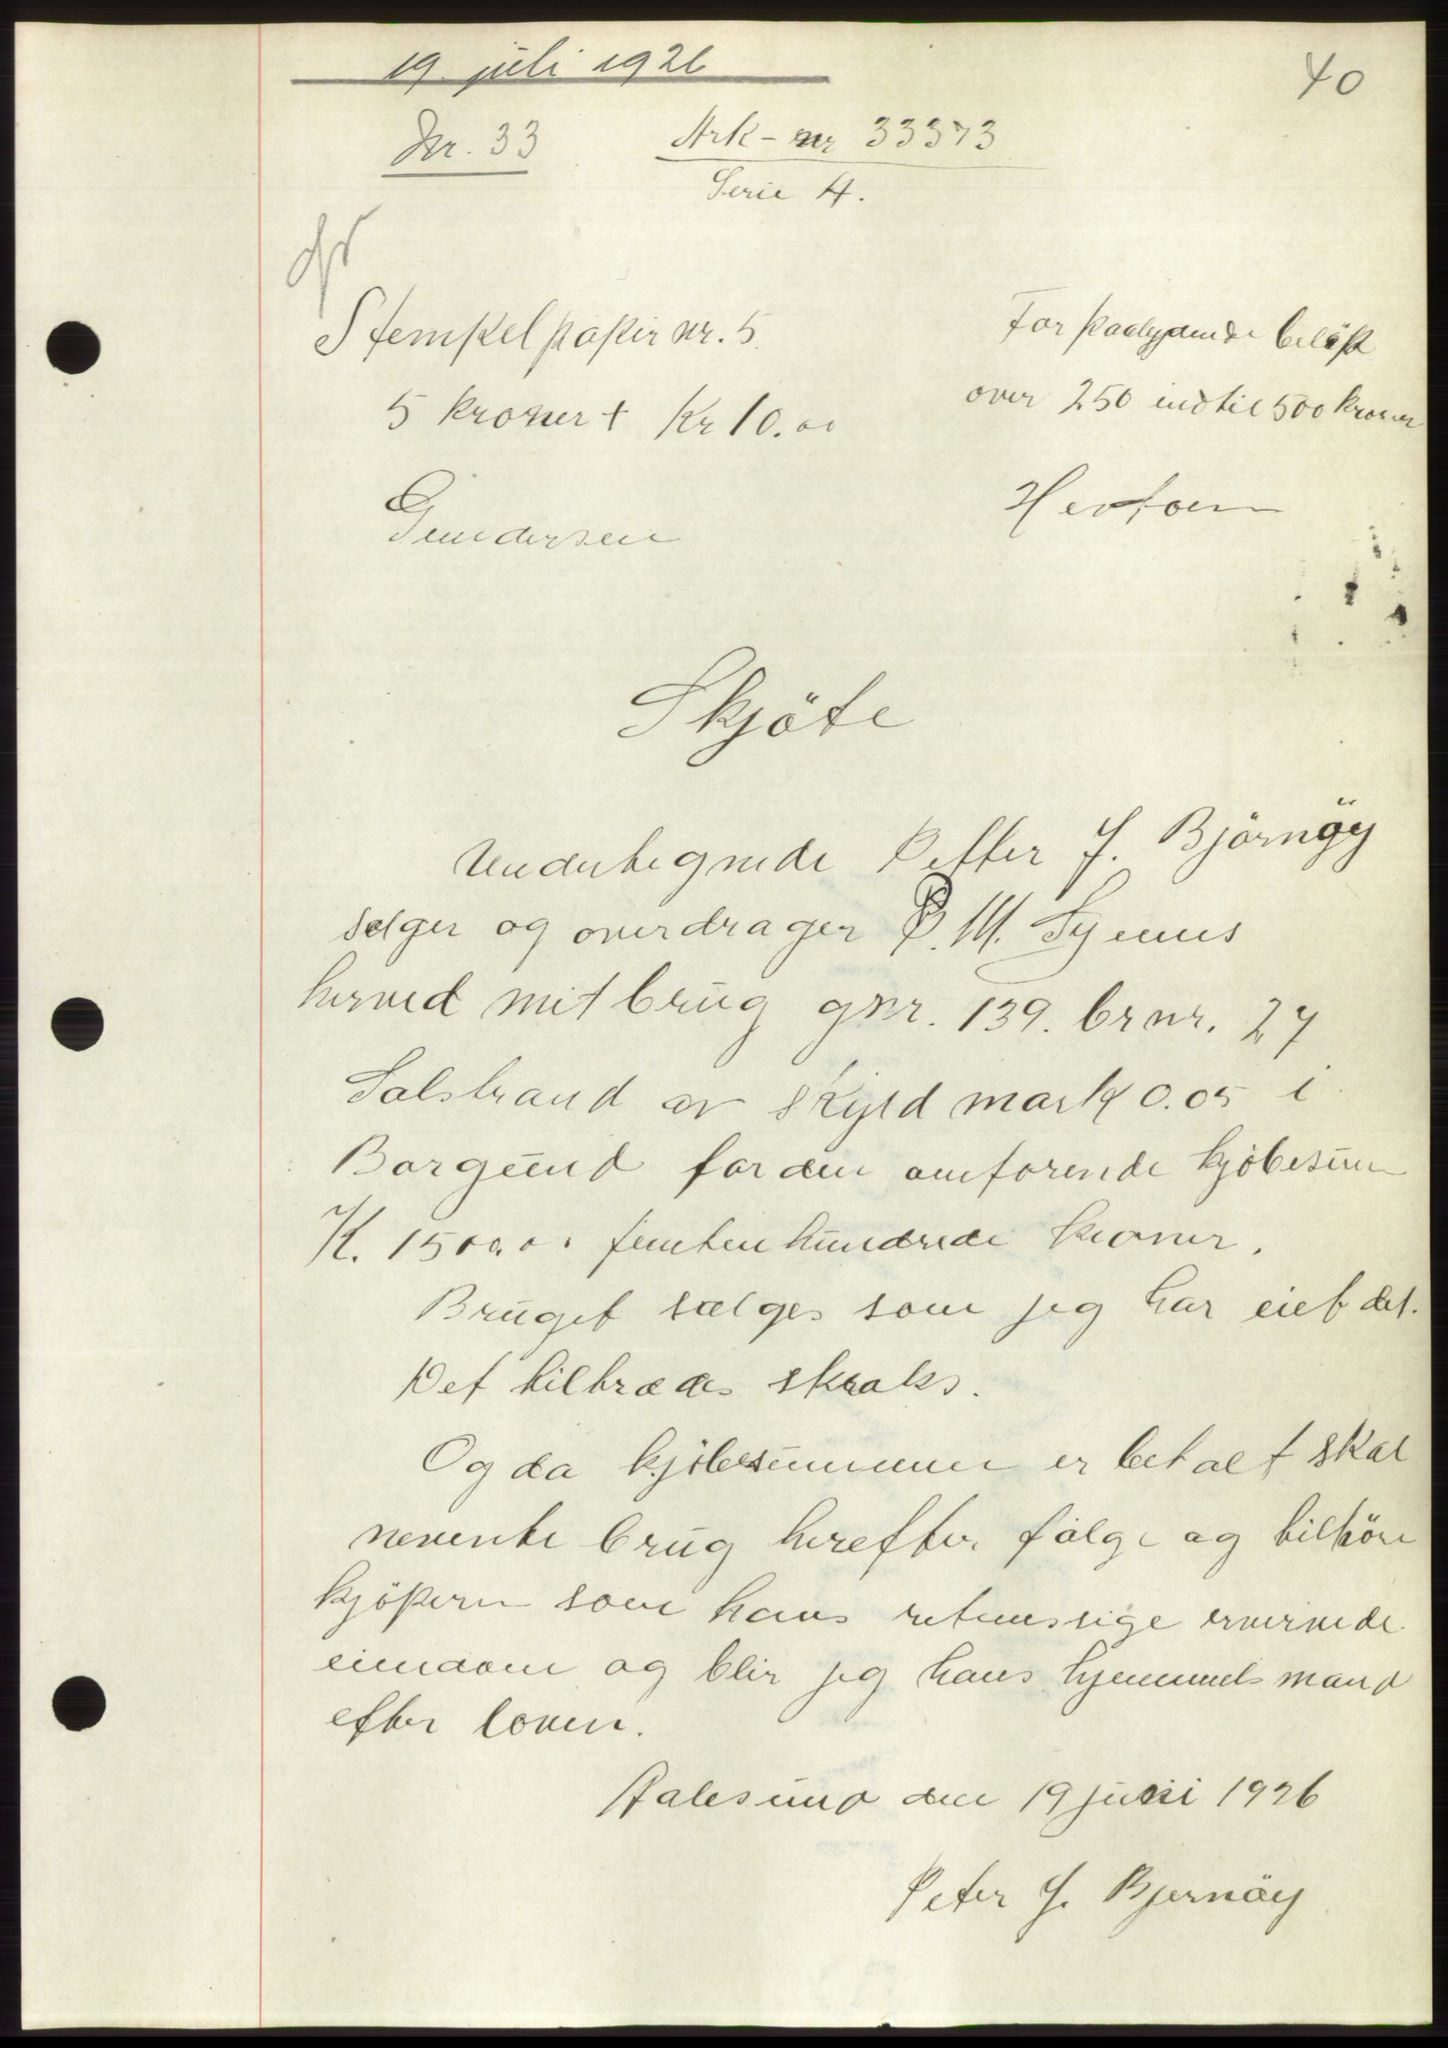 19. juli 1926
40
Nr. 33
Ark-nr 33373
Serie H.
Stempelpapir nr. 5.
For paalydende beløp
5 kroner + Kr 10.00
over 250 indtil 500 kroner
Gundersen
Skjöte
Undertegnede Petter J. Björnöy
selger og overdrager P. M.
herved mit brug gnr. 139. brnr. 27
Solstrand av skyld mark 0.05 i
Borgund for den omforende kjöbesum
K. 1500.00 femten hundrede kroner.
Bruget sælges som jeg har eiet det.
Det tiltrædes straks.
Og da kjöbesummen er betalt skal
nevente brug herefter fölge og tilhöre
kjöperen som hans retmessige erververde
eiendom og blir jeg hans hjemmels mand
efter loven.
Aalesund den 19 juni 1926
Peter J. Bjernöy